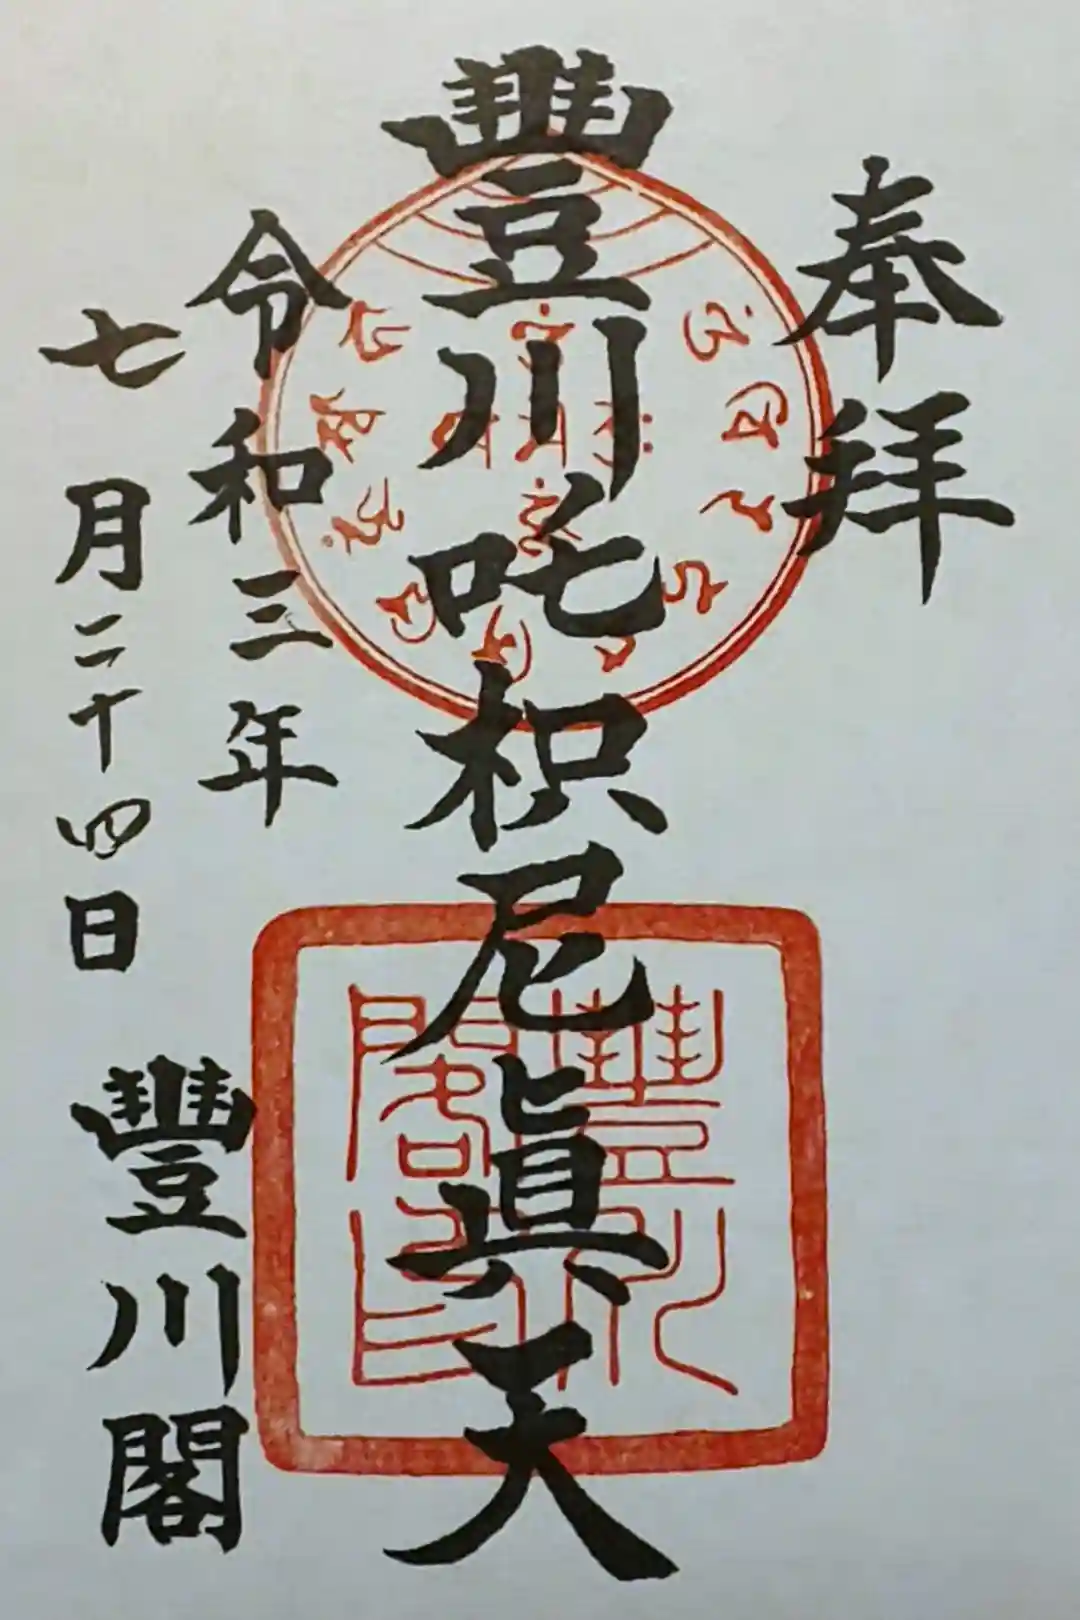 奉拜
豐川吒枳尼眞天
令和三年
七月二十四日
豐川閣
豐川閣印